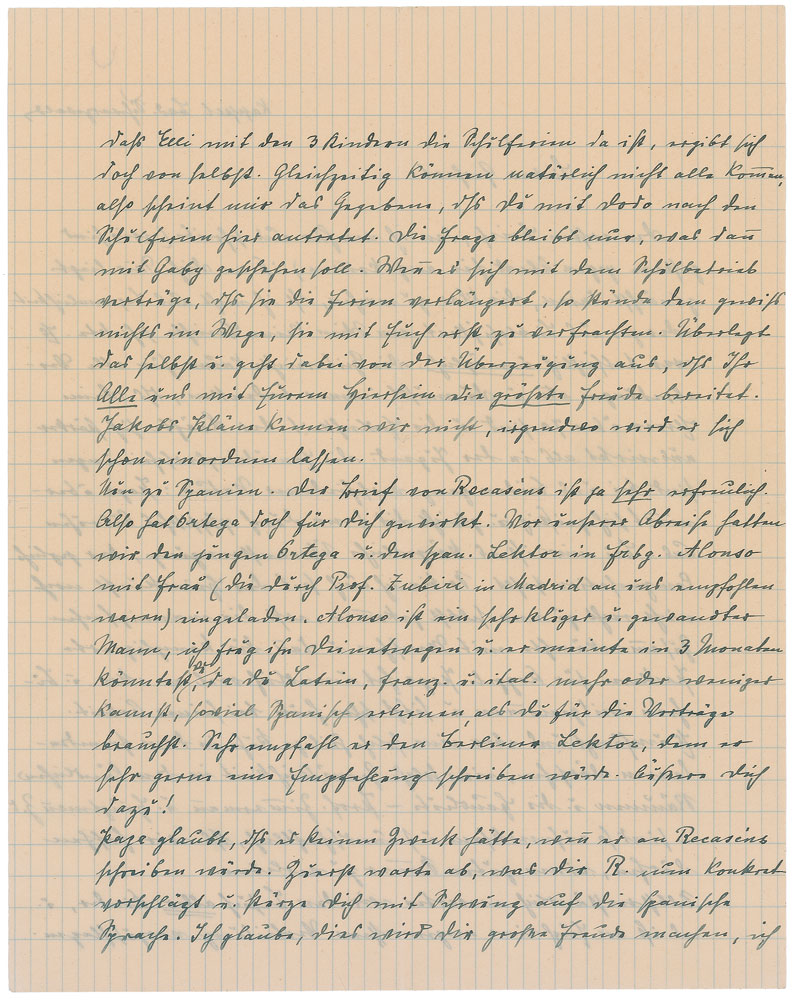 dass Elli mit den 3 Kindern die Schulferien da ist, ergibt sich
doch von selbst. Gleichzeitig können natürlich nicht alle kom̅en,
also scheint mir das Gegebene, dss Du mit Dodo nach den
Schulferien hier antretet. Die Frage bleibt nur, was dan̅
mit Gaby geschehen soll. Wen̅ es sich mit dem Schulbetrieb
vertrüge, dss sie die Ferien verlängert, so stünde dem gewiss
nichts im Wege, sie mit Euch erst zu verfrachten. Überlegt
das selbst u. geht dabei von der Überzeugung aus, dss Ihr
Alle uns mit Eurem Hiersein die grösste Freude bereitet.
Jakobs Pläne kennen wir nicht, irgendwo wird er sich
schon einordnen lassen.
Nun zu Spanien. Der Brief von Recaséns ist ja sehr erfreulich.
Also hat Ortega doch für Dich gewirkt. Vor unserer Abreise hatten
wir den jungen Ortega u. den span. Lektor in Frbg. Alonso
mit Frau (die durch Prof. Zubiri in Madrid an uns empfohlen
waren) eingeladen. Alonso ist ein sehr kluger u. gewandter
Mann, ich frug ihn Deinetwegen u. er meinte in 3 Monaten
könntest Du, da Du Latein, franz. u. ital. mehr oder weniger
kannst, soviel Spanisch erlernen, als Du für die Vorträge
brauchst. Sehr empfahl er den Berliner Lektor, dem er
sehr gerne eine Empfehlung schreiben würde. Äussere Dich
dazu!
Papa glaubt, dss es keinen Zweck hätte, wen̅ er an Recaséns
schreiben würde. Zuerst warte ab, was Dir R. nun konkret
vorschlägt u. stürze Dich mit Schwung auf die spanische
Sprache. Ich glaube, dies wird Dir grosse Freude machen, ich